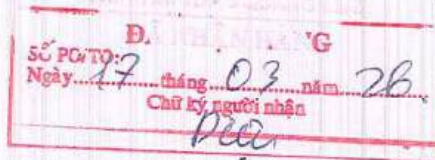 Đ. G
SỐ PO/TO:
Ngày 17 tháng 03 năm 26
Chữ ký người nhận